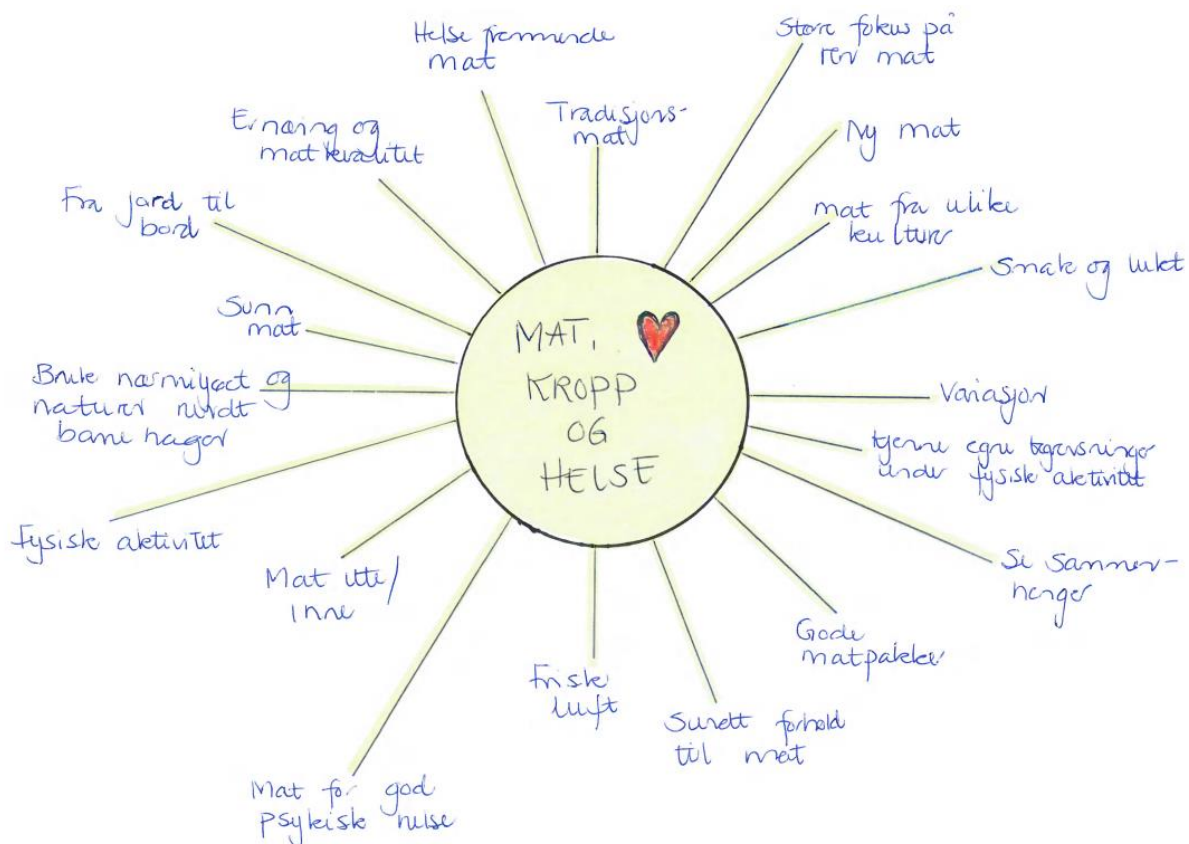 MAT,
KROPP
OG
HELSE
Helse fremmende
mat
Tradisjons-
mat
Store fokus på
ren mat
Ny mat
mat fra ulike
kulturer
Smak og lukt
Variasjon
kjenne egne begrensninger
under fysisk aktivitet
Se sammen-
henger
Gode
matpakker
Sunett forhold
til mat
Frisk
luft
Mat for god
psykisk helse
Mat ute/
inne
Fysisk aktivitet
Bruke nærmiljøet og
naturen rundt
barnehagen
Sunn
mat
Fra jord til
bord
Ernæring og
matkvalitet